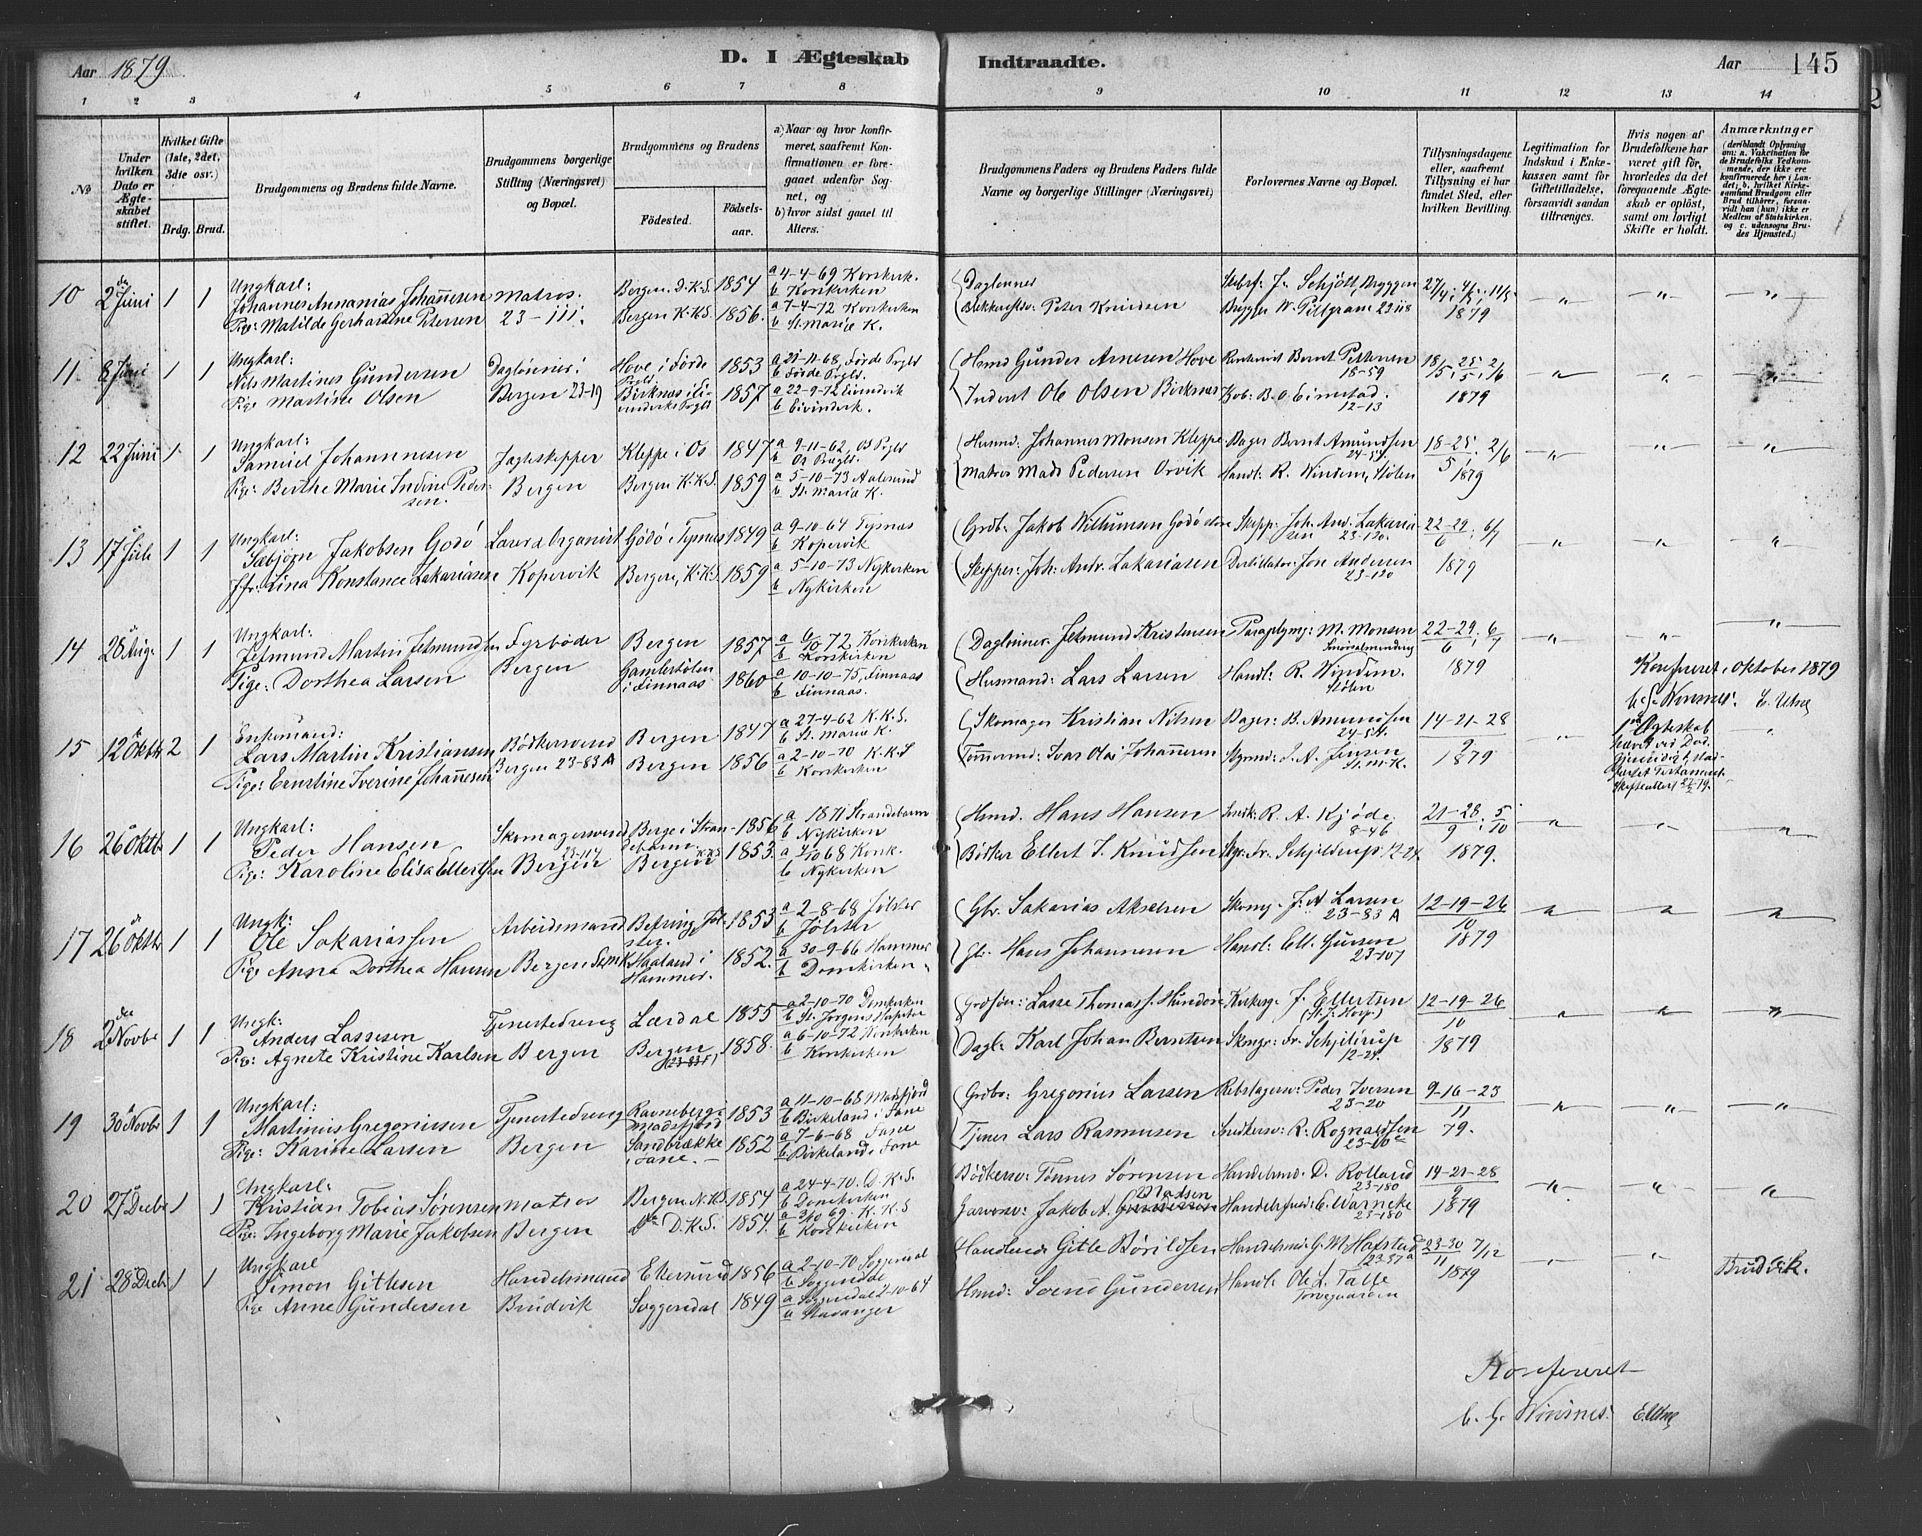 Aar 1879. D. I Ægteskab Indtraadte. Aar 145
1 2 3 4 5 6 7 8 9 10 11 12 13 14
No
Under hvilken Dato er Ægteskabet stiftet.
Hvilket Gifte (1ste, 2det, 3die osv.)
Brdg. Brud.
Brudgommens og Brudens fulde Navne.
Brudgommens borgerlige Stilling (Næringsvei) og Bopæl.
Brudgommens og Brudens
Fødested.
Fødselsaar.
a) Naar og hvor konfirmeret, saafremt Konfirmationen er foregaaet udenfor Sognet, og
b) hvor sidst gaaet til Alters.
Brudgommens Faders og Brudens Faders fulde Navne og borgerlige Stillinger (Næringsvei)
Forlovernes Navne og Bopæl.
Tillysningsdagene eller, saafremt Tillysning ei har fundet Sted, efter hvilken Bevilling.
Legitimation for Indskud i Enkekassen samt for Giftetilladelse, forsaavidt saadan tiltrænges.
Hvis nogen af Brudefolkene har været gift før, hvorledes da det foregaaende Ægteskab er opløst, samt om lovligt Skifte er holdt.
Anmærkninger (deriblandt Oplysning om: a. Vakcination for de Brudefolks Vedkommende, der ikke ere konfirmerede her i Landet; b. hvilket Kirkesamfund Brudgom eller Brud tilhører, forsaavidt han (hun) ikke er Medlem af Statskirken, og c. udensogns Brudes Hjemsted.)
10 2 Juni 1 1 Ungkarl: Johannes Annanias Johannesen Matros Bergen D.K.S. 1854 a 4-4-69 Korskirk. b Korskirken Dagleiner J. Schjött, Bryggen
Pige: Matilde Gerhardine Petersen 23-111. Bergen K.K.S. 1856. a 7-4-72 Korskirken b St. Marie K. Peter Knudsen Brygger W. Piltgram 23-118 1879
11 8 Juni 1 1 Ungkarl: Nils Martines Gundersen Dagleiner: Hove i Førde Prgld. 1853 a 21-11-68, Førde Prgld b Førde Prgld. Husmd Gunder Arnesen Hove Bernt Petersen 18-59 18/5, 25/5, 2/6
Pige Martine Olsen Bergen 23-19 Birknes i Eivindviks Prgld 1857 a 22-9-72 Eivindvik b Eivindvik. Inderst Ole Olsen Birknes B. O. Eimstad. 12-13 1879
12 22 Juni 1 1 Ungkarl: Samuel Johannesen Jagteskipper Kleppe i Os 1847 a 9-11-62, Os Prgld b Os Prgld. Husmd: Johannes Monsen Kleppe Bager Bernt Amundsen 24-54 18-25/5, 2/6
Pige: Berthe Marie Indine Pedersen. Bergen Bergen K.K.S. 1859 a 5-10-73 Aalesund b St. Marie K. Matros Mads Pedersen Orvik Handl: R. Windem, Stølen 1879
13 17 Juli 1 1 Ungkarl: Sæbjørn Jakobsen Godö Organist Gödö i Tysnes 1849 a 9-10-64 Tysnæs b Kopervik Grdb. Jakob Willumsen Godö Skipp: Joh. And. Zakariasen 23-120. 22-29/6; 6/7
Jfr: Lina Konstance Zakariasen Kopervik Bergen, K.K.S. 1859 a 5-10-73 Nykirken b Nykirken Skipper: Joh: Andr. Zakariasen Destillatør: Jon Andersen 23-120 1879
14 28 Aug. 1 1 Ungkarl: Jetmund Martin Jetmundsen Fyrbøder Bergen 1857 a 6/10 72 Korskirken b Korskirken Dagleiner: Jetmund Kristensen M. Monsen 22-29/6; 6/7
Pige: Dorthea Larsen Bergen i Finnaas 1860 a 10-10-75, Finnaas b Finnaas. Husmand: Lars Larsen Handl: R. Windem. Stølen 1879
Konfereret i Oktober 1879
C. S. Winsnes. E. Utne
15 12 Oktbr 2 1 Enkemand: Lars Martin Kristiansen Bødkersvend Bergen 1847 a 27-4-62 K.K.S. b St. Marie K. Skomager Kristian Nilsen Bager: B. Amundsen 24-54. 14-21-28/9
Pige: Ernstine Iverine Johannesen Bergen 23-83 A Bergen 1856 a 2-10-70 K.K.S b Korskirken Tømmermd: Ivar Olai Johannesen Styrmd: S. A. Jensen St. M. K. 1879
16 26 Oktbr 1 1 Ungkarl: Peder Hansen Skomagersvend Berge i Strandebarm 1856 a 1871 Strandebarm b Nykirken Husmd. Hans Hansen Snedk: R. A. Kjøde. 8-46 21-28/9; 5/10
Pige: Karoline Elisa Ellertsen Bergen Bergen K.K.S 1853. a 4/10 68 Korsk. b Nykirken Bødker Ellert J. Knudsen Fr. Schjelderup 12-24 1879.
17 26 Oktbr 1 1 Ungk: Ole Sakariassen Arbeidsmand Befring Jølster 1853 a 2-8-68 Jølster b Jølster Gbr. Sakarias Akselsen Skomg. J. A. Larsen 23-83 A 12-19-26/10
Pige Anna Dorthea Hansen Bergen i Hammer. 1852. a 30-9-66 Hammer b Domkirken Hans Johannesen Handl: 23-107 1879
18 2 Novbr 1 1 Ungk: Anders Lassesen Tjenestedreng Lærdal 1855 a 2-10-70 Domkirken b St. Jørgens Hospital Lasse Thomass. J. Ellertsen (St. J. Hosp.) 12-19-26/10
Pige: Agnete Kristine Karlsen Bergen Bergen 1858. a 6-10-72 Korskirken b Korskirken Dagl: Karl Johan Berntsen Fr. Schjelderup 12-24. 1879
19 30 Novbr 1 1 Ungkarl: Martinus Gregoriussen Tjenestedreng Ravneberg i Madsfjord 1853 a 11-10-68 Masfjord b Birkeland i Fane Grdbr. Gregorius Larsen Rebslagersv: Peder Iversen 23-20 9-16-23/11
Pige: Karine Larsen Bergen Sandbrække i Fane. 1852 a 7-6-68 Fane b. Birkeland i Fane Tjener Lars Rasmusen Snedkersv: R. Rognaldsen 79.
20 27 Decbr 1 1 Ungkarl: Kristian Tobias Sørensen Matros Bergen N.K.S. 1854 a 24-4-70. D.K.S. b Domkirken Bødkersv: Tønnes Sørensen Handelsmd. D. Rolland 23-180 14-21-28/9
Pige: Ingeborg Marie Jakobsen Bergen Do D.K.S. 1854. a 3/10 69. K.K.S b Korskirken Jakob A. Madsen C. Warncke 23-180 1879
21 28 Decbr 1 1 Ungkarl Simon Gitlesen Handelsmand Ekersund 1856 a 2-10-70 Soggendal b Soggendal Handlende Gitle Børildsen Handelsmd. G. M. Hafstad 23-57 a 23-30/11 7/12
Pige Anne Gundersen Brudvik Soggendal 1849 a Soggendal 2-10-64 b Stavanger Husmd: Svend Gundersen Handl: Ole L. Talle Torvegaarden 1879 Brudvik.
Konfereret
C. S. Winsnes. E. Utne